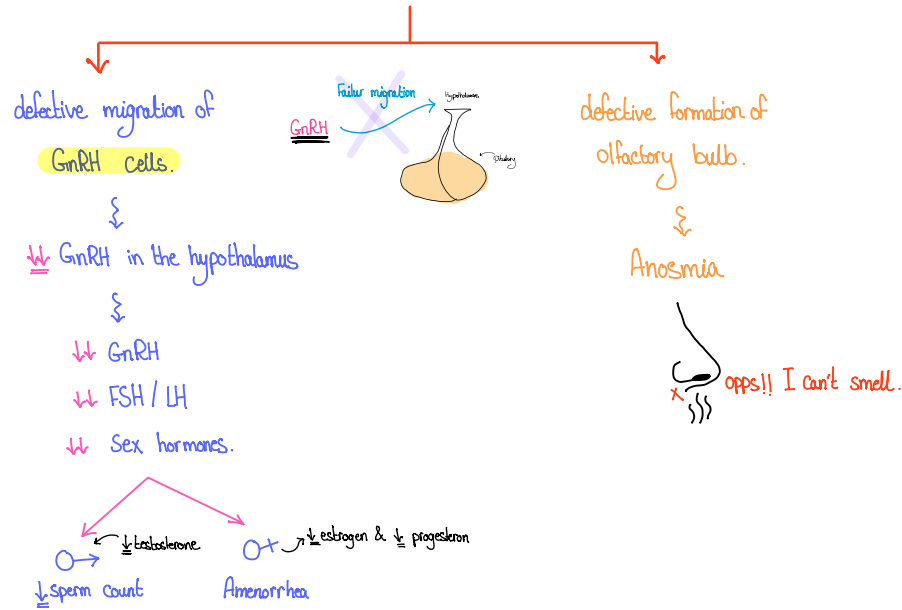 defective migration of
GnRH cells.
↓↓ GnRH in the hypothalamus
↓↓ GnRH
↓↓ FSH / LH
↓↓ Sex hormones.
↓ testosterone
↓ sperm count
↓ estrogen & ↓ progesteron
Amenorrhea
Failur migration
GnRH
Hypothalamus
Pituitary
defective formation of
olfactory bulb.
Anosmia
x
opps!! I can't smell.